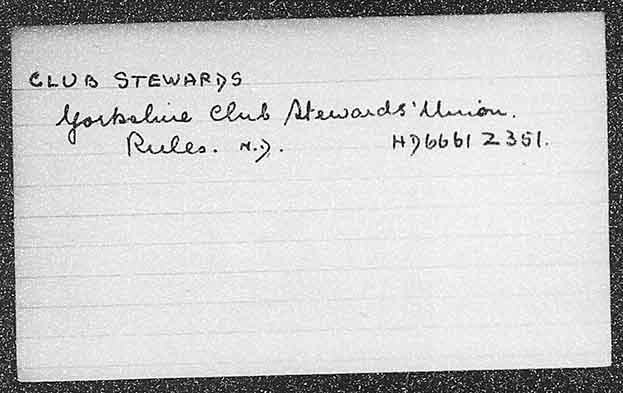 CLUB STEWARDS
Yorkshire Club Stewards' Union.
Rules. N.D. HD6661 Z351.